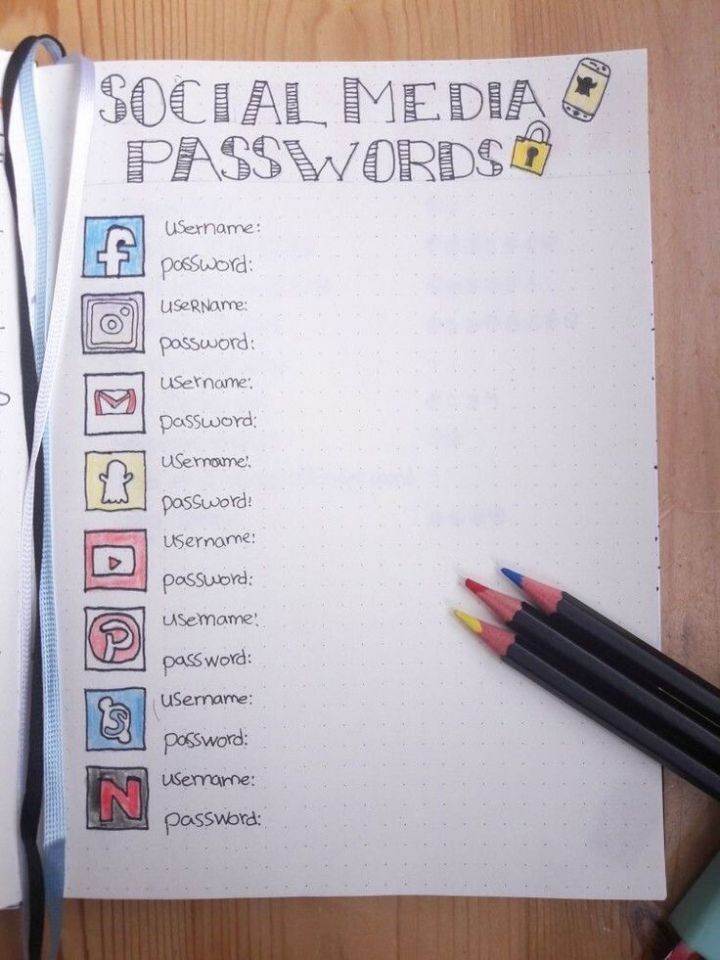 SOCIAL MEDIA
PASSWORDS
f
username:
password:
useRName:
password:
M
username:
password:
username:
password:
username:
password:
P
username:
password:
S
username:
password:
N
username:
password: